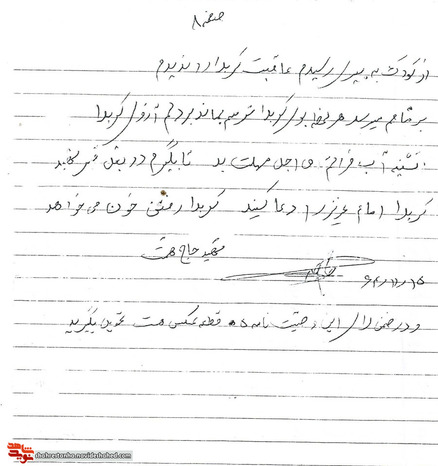 صفحه ۸
از کودکی به پیری رسیدم عاقبت کربلا را ندیدم
بر مشامم میرسد هر لحظه بوی کربلا ترسم بماند بر دلم آرزوی کربلا
تشنه آب فراتم ای اجل مهلت بده تا بگیرم در بغل قبر شهید
کربلا امام عزیز را دعا کنید کربلا رفتن خون می خواهد
شهید حاج همت
و در ضمن لای این وصیت نامه ۵ قطعه عکس هست تحویل بگیرید
نوید شاهد
shahrestanha.navideshahed.com